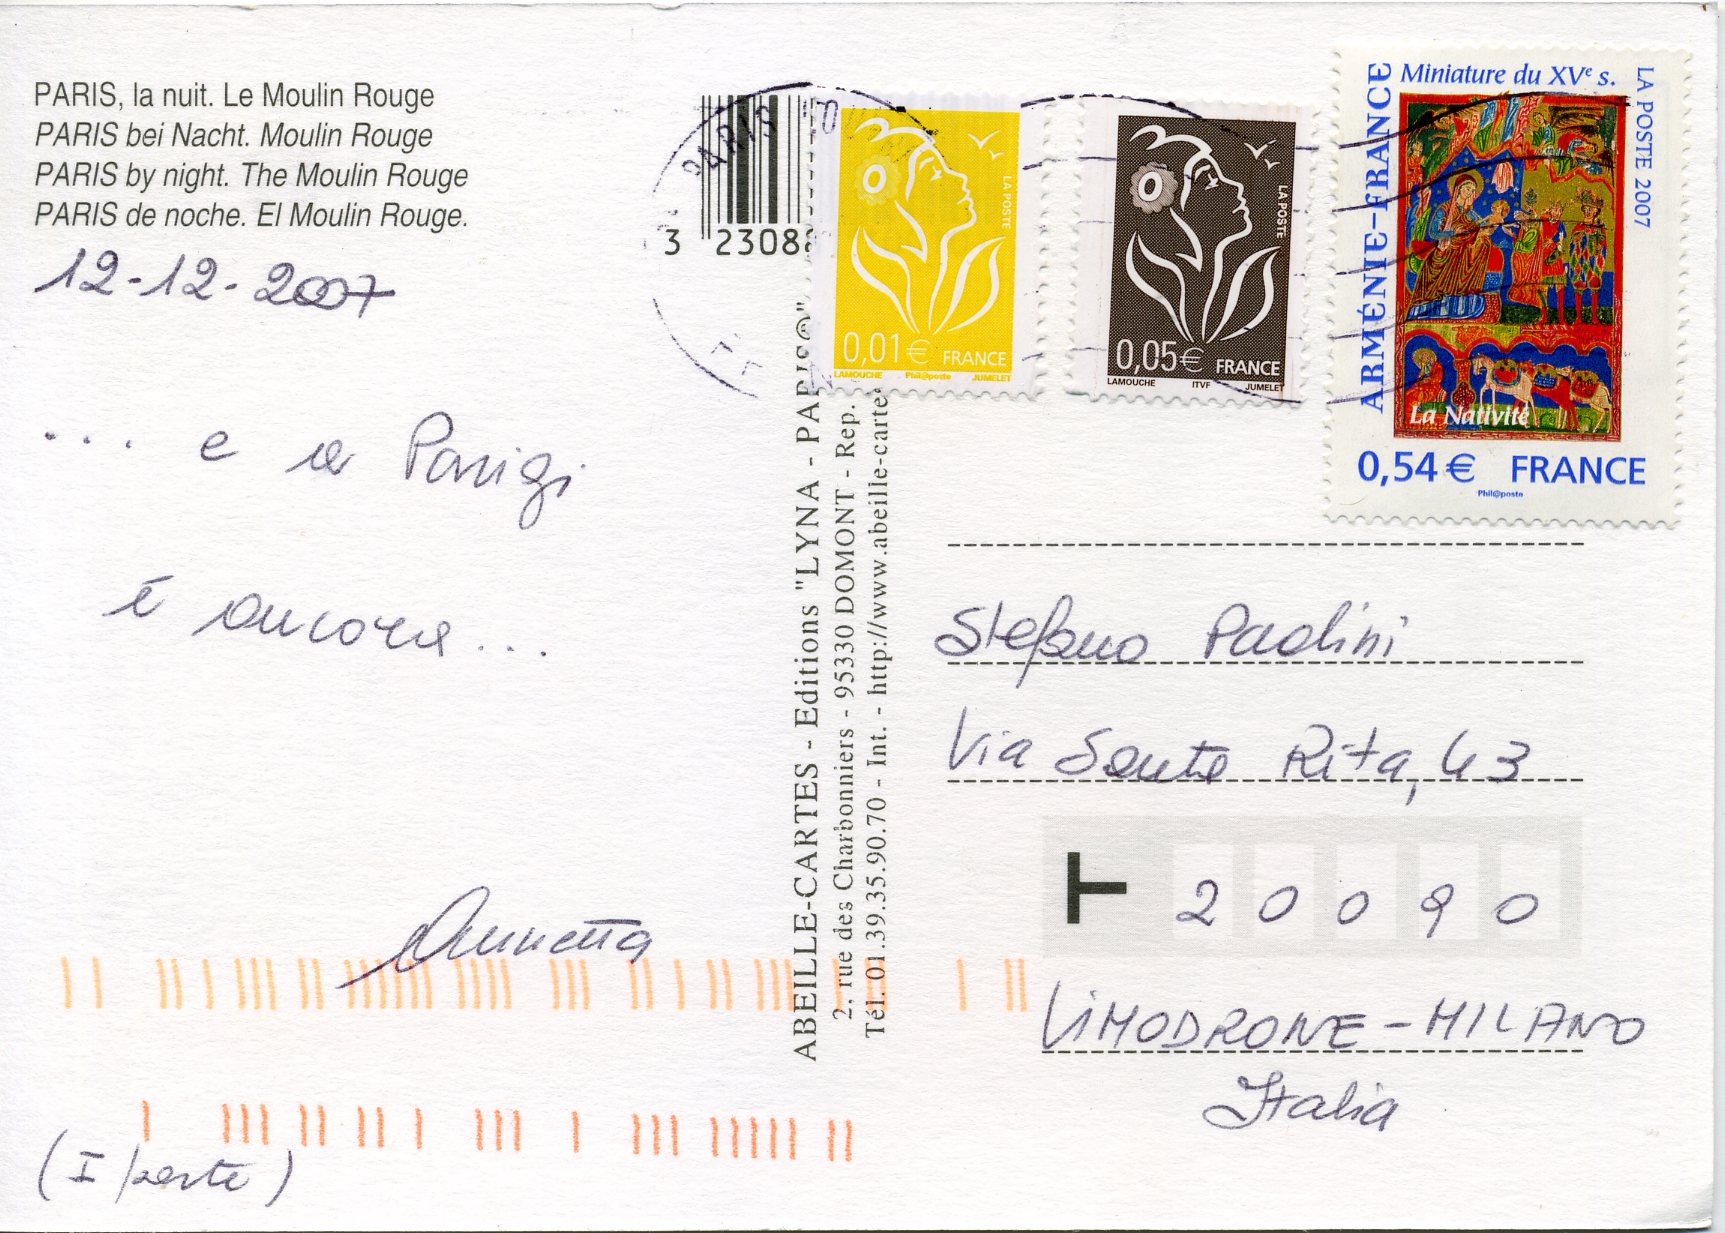 PARIS, la nuit. Le Moulin Rouge
PARIS bei Nacht. Moulin Rouge
PARIS by night. The Moulin Rouge
PARIS de noche. El Moulin Rouge.
12-12-2007
... e a Parigi
è ancora...
Annetta
(I parte)
3 23088
PARIS
ABEILLE-CARTES - Editions "LYNA - PARIS®"
2, rue des Charbonniers - 95330 DOMONT - Rep.
Tél. 01.39.35.90.70 - Int. - http://www.abeille-carte
LA POSTE
0,01 € FRANCE
LAMOUCHE Phil@poste JUMELET
LA POSTE
0,05 € FRANCE
LAMOUCHE ITVF JUMELET
Miniature du XVe s.
ARMÉNIE-FRANCE
LA POSTE 2007
La Nativité
0,54 € FRANCE
Phil@poste
Stefano Paolini
Via Santa Rita, 43
T 20090
VIMODRONE - MILANO
Italia